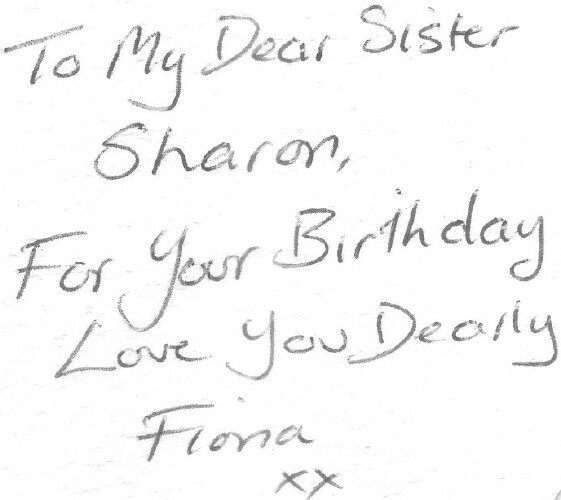 To My Dear Sister
Sharon,
For Your Birthday
Love You Dearly
Fiona
xx